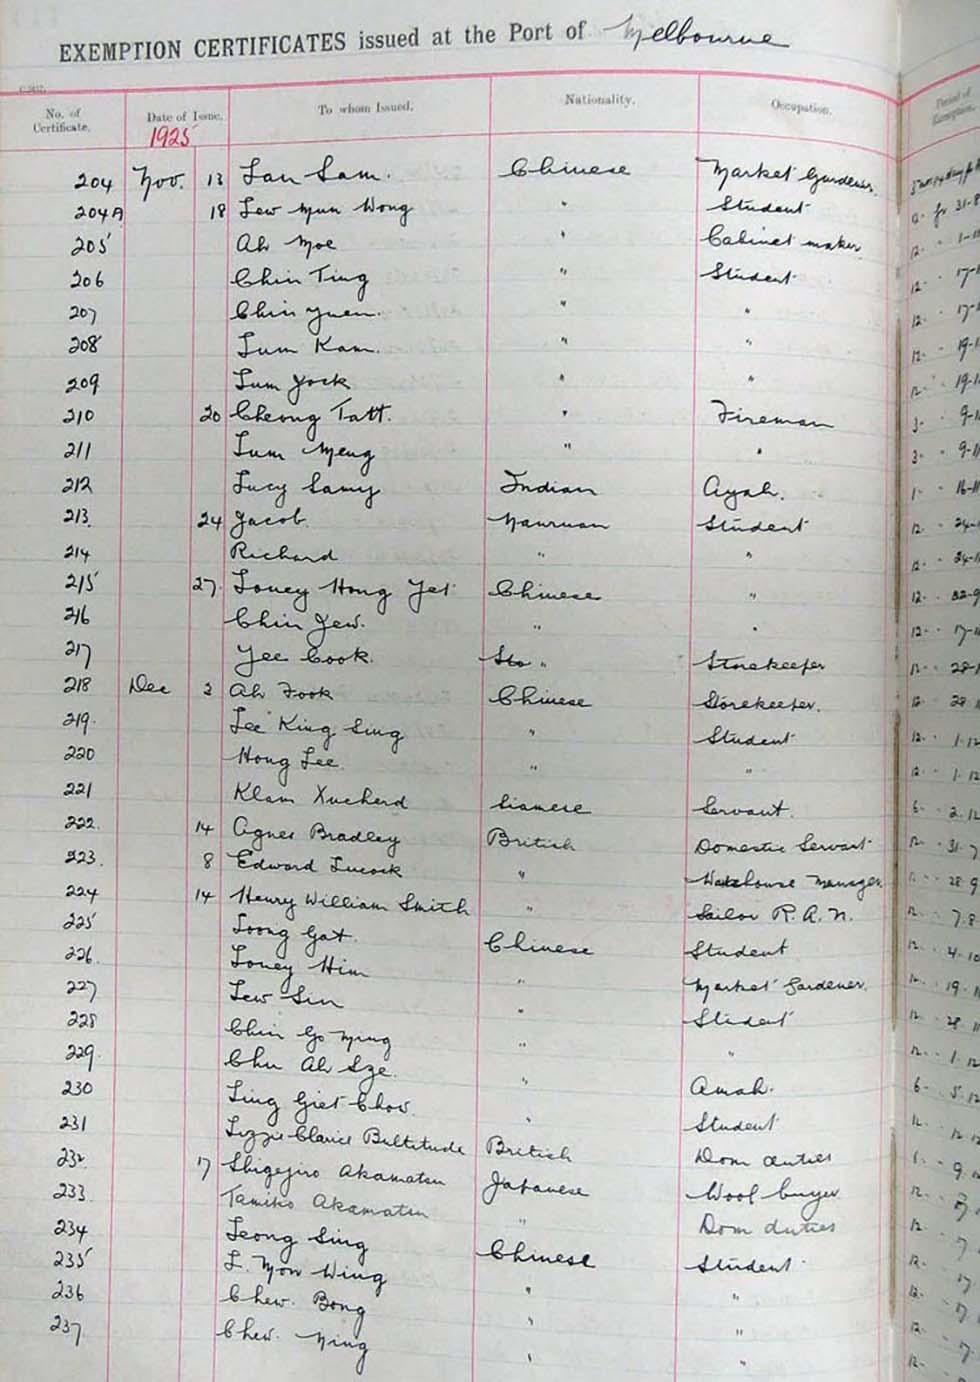 EXEMPTION CERTIFICATES issued at the Port of Melbourne
No. of Certificate. Date of Issue. To whom Issued. Nationality. Occupation. Period of Exemption.
1925
204 Nov. 13 Lau Sam. Chinese Market Gardener
204A 18 Lew Mun Wong " Student 31-8
205 Ah Moe " Cabinet maker 12 "
206 Chin Ting " Student 12 " 17-1
207 Chin Yuen. " " 12 " 17-1
208 Lum Kam. " " 12 " 19-1
209 Lum Jock " " 12 " 19-1
210 20 Cheong Tatt. " Fireman 3 " 9-1
211 Lum Meng " " 3 " 9-11
212 Lucy Samy Indian Ayah. 1 " 16-11
213. 24 Jacob. Nauruan Student 12 " 24-1
214 Richard " " 12 " 24-11
215 27. Loney Hong Yet Chinese " 12 " 22-9
216 Chin Jew. " " 12 " 17-11
217 Yee Cook. " Storekeeper 12 " 28-1
218 Dec 2 Ah Fook Chinese Storekeeper. 12 " 28 11
219. Lee King Sing " Student 12 " 1.12
220 Hong Lee. " " 12 " 1.12
221 Klam Xucherd Siamese Servant. 6 " 2.12
222. 14 Agnes Bradley British Domestic Servant 12 " 31.7
223. 8 Edward Lucock " Warehouse Manager 28.9
224 14 Henry William Smith " Sailor R.A.N. 12 " 7.8
225 Loong Gat. Chinese Student 12 " 4.10
226. Loney Him " Market Gardener. 12 " 19.11
227 Lew Sin " Student 12 " 28.11
228 Chin Go Ming " " 12 " 1.12
229. Chu Ah Sze. " Amah. 6 " 5.12
230 Ling Giet Chow " Student 12 " 12.12
231 Lizzie Clarice Bultitude British Dom duties 1 " 9.
232. 17 Shigejiro Akamatsu Japanese Wool buyer 12 " 7.
233. Tamiko Akamatsu " Dom duties 12 " 7.
234 Leong Sing Chinese Student 12 " 17
235 L. Mow Wing " " 12 " 7.
236 Chew. Bong " " 12 " 7.
237. Chew. Ming " " 12 "